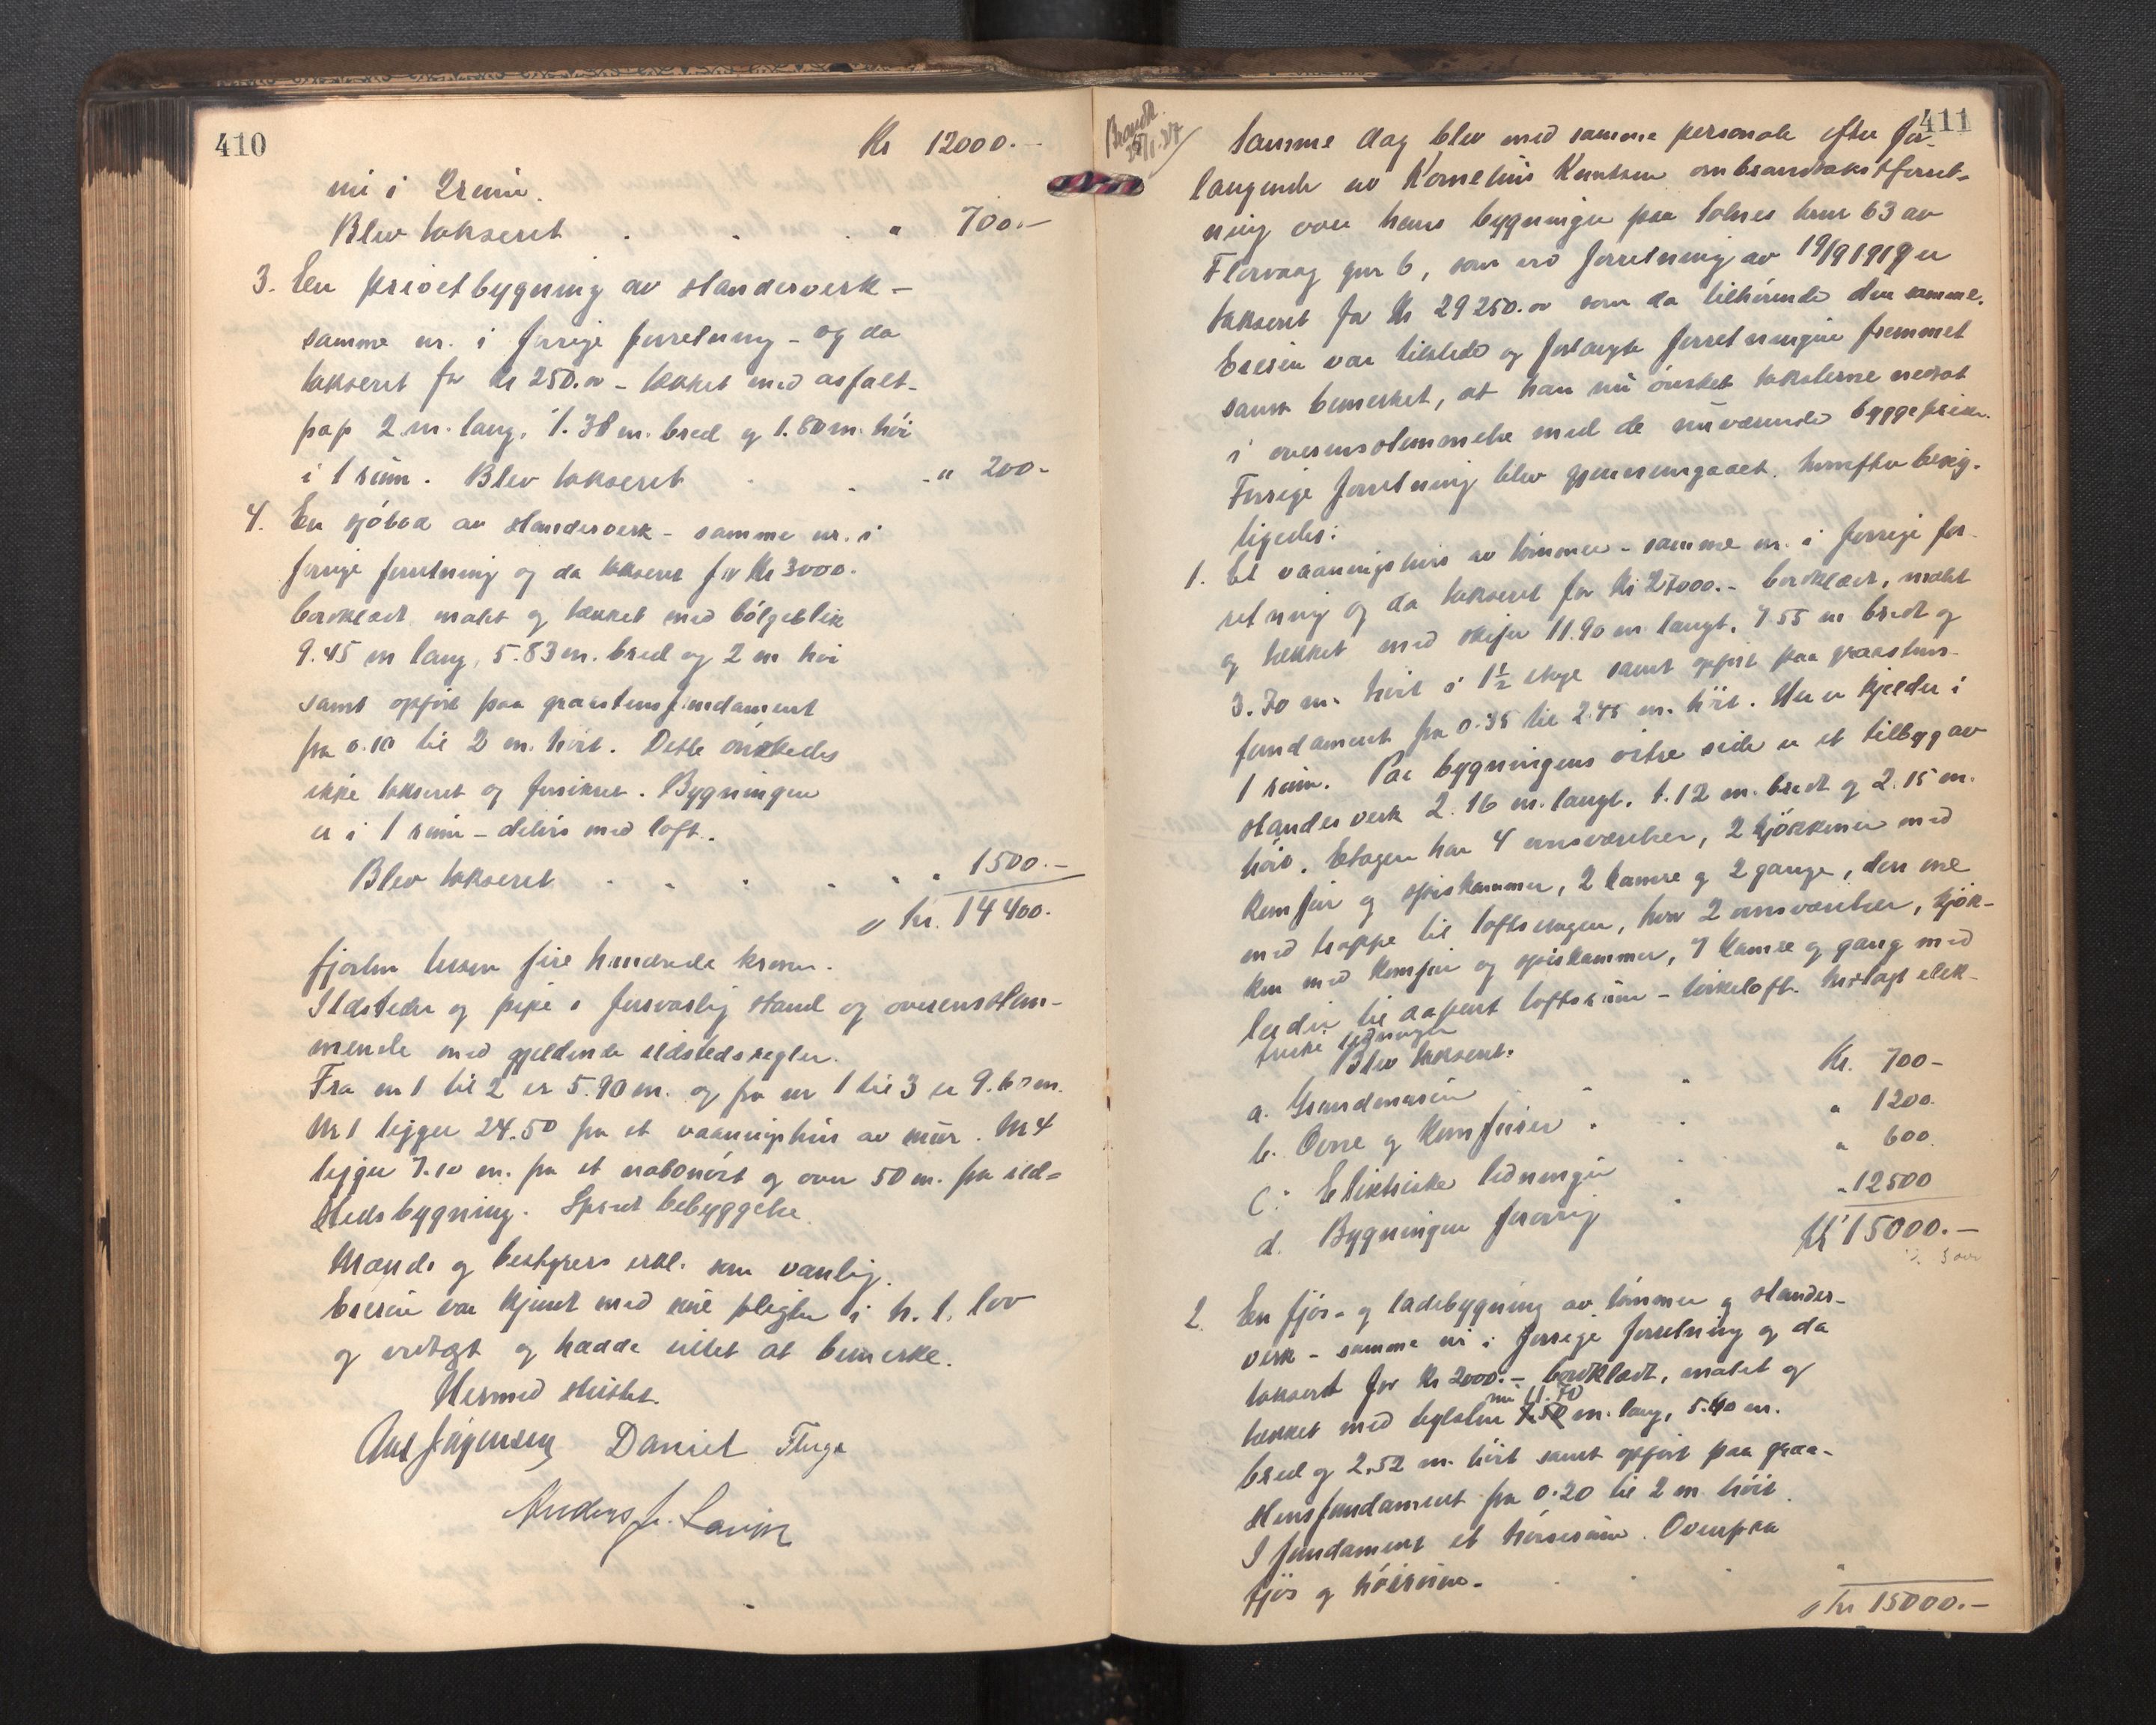 410
Kr 12000.-
nu i 2 rum.
Blev takseret . . . " 700.-
3. En privetbygning av standerverk -
samme nr. i forrige forretning - og da
takseret for Kr 250.00 - tækket med asfalt-
pap 2 m. lang, 1.38 m. bred og 1.80 m. höi
i 1 rum. Blev takseret . . . " 200-
4. En sjöbod av standerverk - samme nr. i
forrige forretning og da takseret for Kr 3000.
bordklædt, malet og tækket med bölgeblik
9.45 m lang, 5.83 m. bred og 2 m höi
samt opfört paa graastensfundament
fra 0.10 til 2 m. höit. Dette önskedes
ikke takseret og forsikret. Bygningen
er i 1 rum - delvis med loft.
Blev takseret . . . . . " 1500.-
Kr. 14400.
fjorten tusen fire hundrede kroner.
Ildsteder og pipe i forsvarlig stand og overensstem-
mende med gjeldende ildstedsregler.
Fra nr 1 til 2 er 5.90 m. og fra nr 1 til 3 er 9.60 m.
Nr 1 ligger 24.50 fra et vaaningshus av mur. Nr 4
ligger 7.10 m. fra et nabonöst og over 50 m. fra ild-
stedsbygning. Spredt bebyggelse.
Mænds og bestyrers erkl. som vanlig.
Eieren var kjendt med sine pligter i h. t. lov
og vedtægt og hadde intet at bemerke.
Hermed sluttet.
Ant Jörgensen Daniel Fluge
Anders J. Lavik
411
Brandt.
25/1-37
Samme dag blev med samme personale efter for-
langende av Kornelius Knutsen ombrandtakstforret-
ning over hans bygninger paa Solnes brnr 63 av
Florvaag gnr 6, som ved forretning av 19/9 1919 er
takseret for Kr 29250.00 som da tilhörende den samme.
Eieren var tilstede og forlangte forretningen fremmet
samt bemerket, at han nu önsket taksterne nedsat
i overensstemmelse med de nuværende byggepriser.
Forrige forretning blev gjennemgaaet. Derefter besig-
tigedes:
1. Et vaaningshus av tömmer - samme nr. i forrige for-
retning og da takseret for Kr 27000.- bordklædt, malet
og tækket med skifer 11.90 m langt, 7.55 m bredt og
3.70 m. höit i 1½ etage samt opfört paa graastens-
fundament fra 0.35 til 2.45 m. höit. Her er kjelder i
1 rum. Paa bygningens östre side er et tilbygg av
standerverk 2.16 m. langt, 1.12 m. bredt og 2.15 m.
höit. Etagen har 4 værelser, 2 kjökkener med
komfur og spiskammer, 2 kamre og 2 gange, den ene
med trappe til loftsetagen, hvor 2 værelser, kjök-
ken med komfur og spiskammer, 1 kamre og gang med
leider til aapent loftsrum - törkeloft. Indlagt elek-
triske ledninger
Blev takseret:
a. Grundmuren . . Kr. 700-
b. Ovne og komfurer . . " 1200.
c. Elektriske ledninger . . " 600.
d. Bygningen forövrig . " 12500
Kr 15000.-
2. En fjös- og ladebygning av tömmer og stander-
verk - samme nr i forrige forretning og da
takseret for Kr 2000.- bordklædt, malet og
nu 11.70
tækket med teglsten 7.50 m. lang, 5.60 m.
bred og 2.52 m. höit samt opfört paa graa-
stensfundament fra 0.20 til 2 m höit.
I fundament et hönserum. Ovenpaa
fjös og höirum.
Kr 15000.-